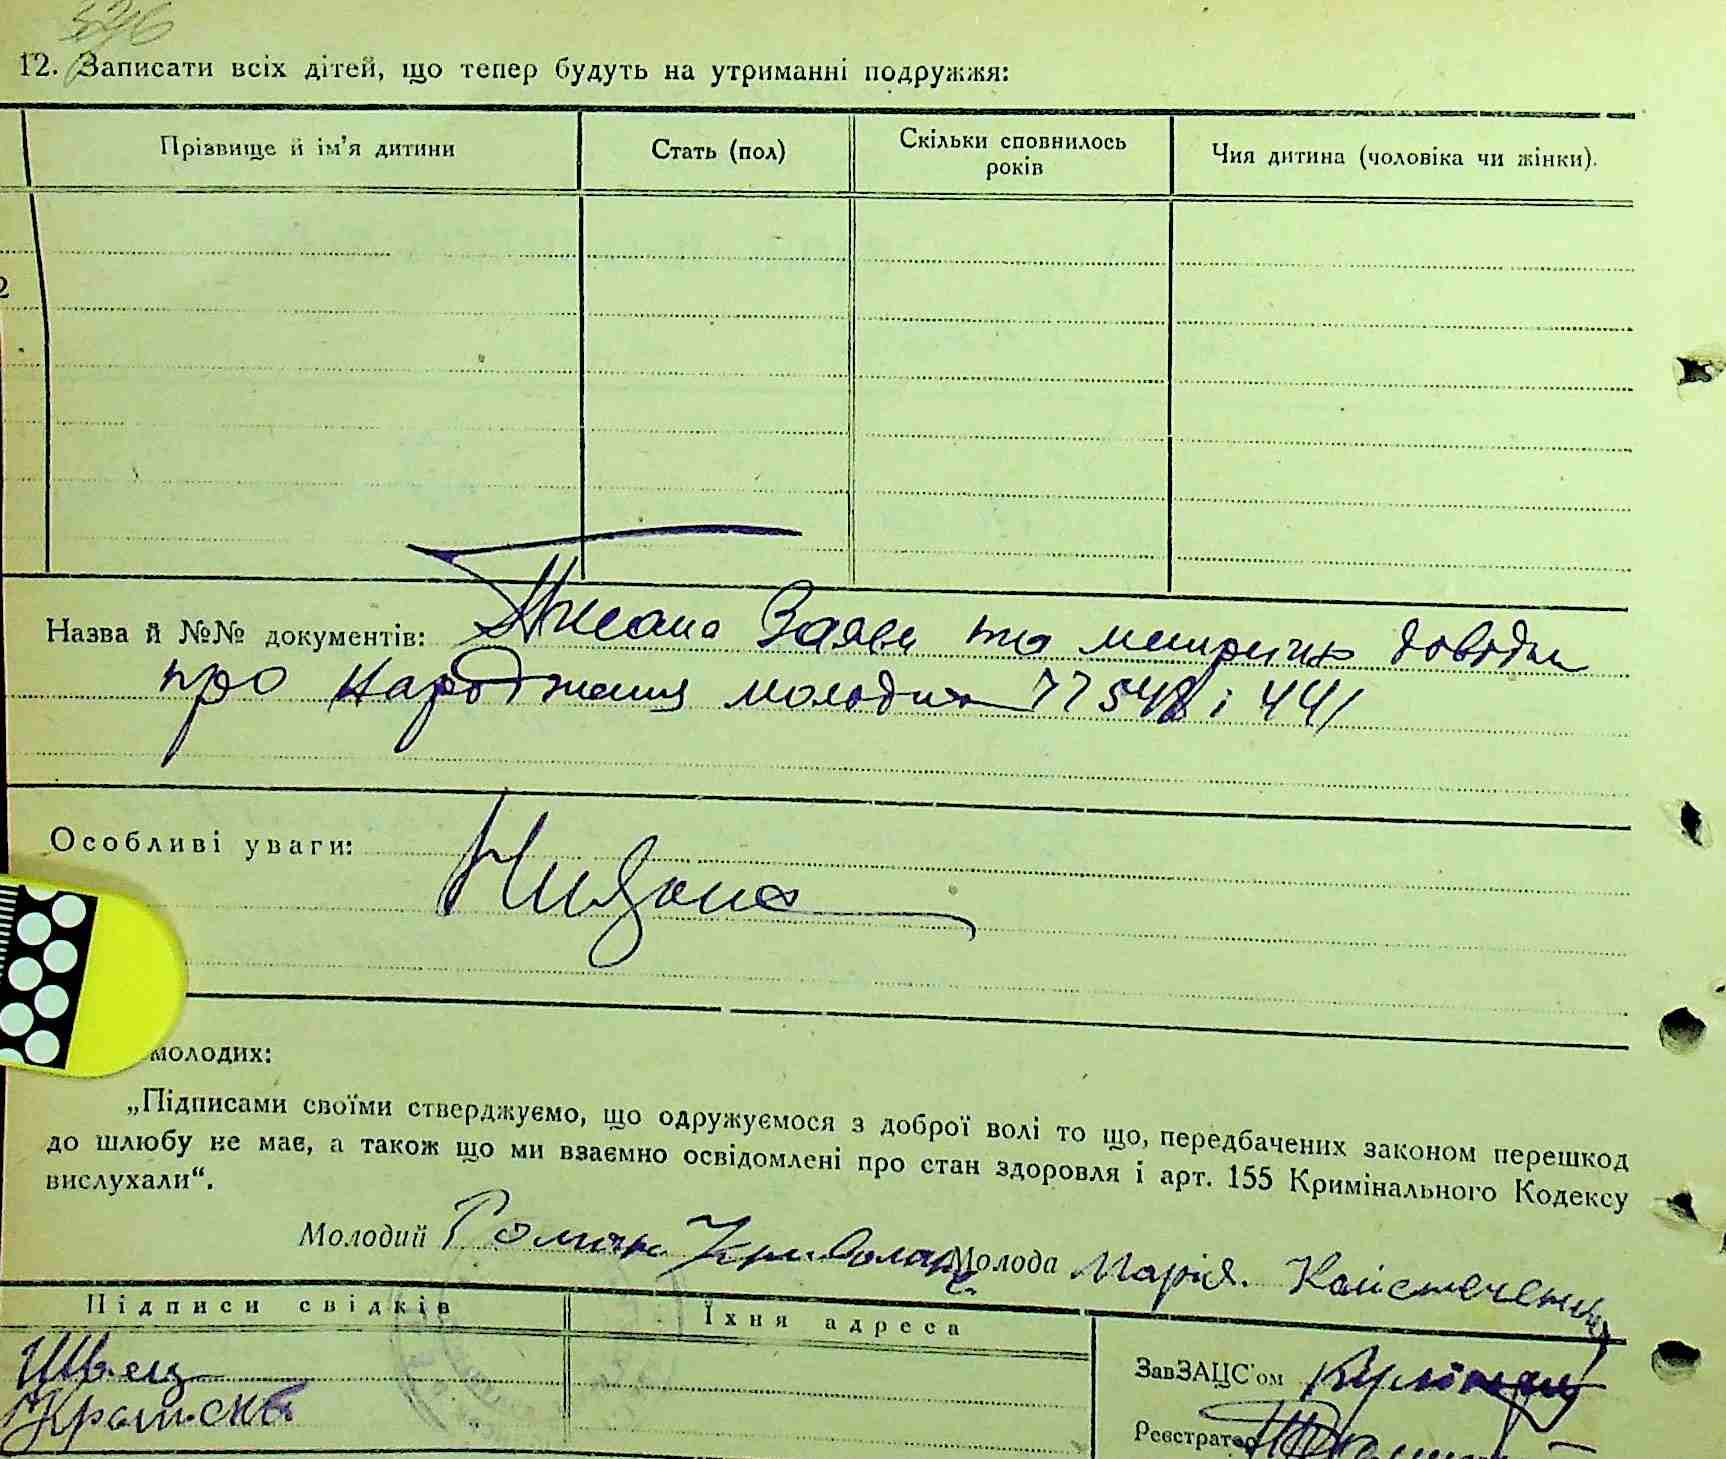 326
12. Записати всіх дітей, що тепер будуть на утриманні подружжя:
Прізвище й ім'я дитини
Стать (пол)
Скільки сповнилось
років
Чия дитина (чоловіка чи жінки).
2
Назва й №№ документів: Заяви та метричн довідки
про народження молодих 77548 і 441
Особливі уваги:
молодих:
„Підписами своїми стверджуємо, що одружуємося з доброї волі то що, передбачених законом перешкод
до шлюбу не має, а також що ми взаємно освідомлені про стан здоровля і арт. 155 Кримінального Кодексу
вислухали“.
Молодий Роман Молода Марія.
Підписи свідків
Їхня адреса
Швец
ЗавЗАЦС'ом
Реєстратор